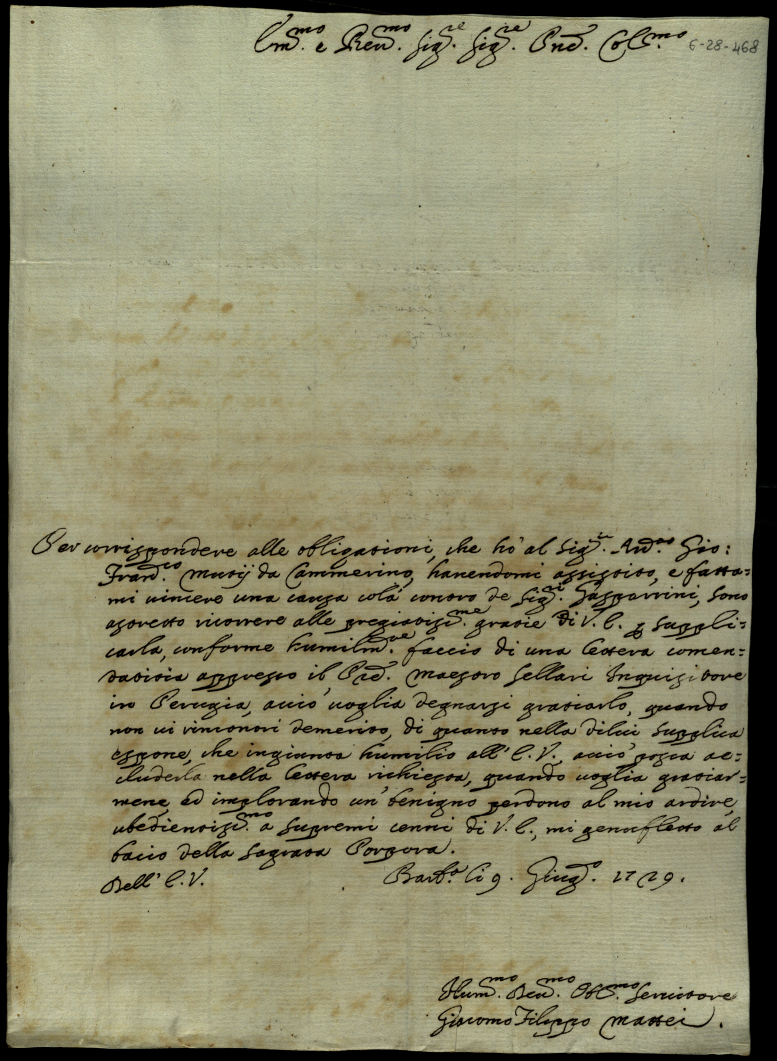 Em.mo e Rev.mo Sig.re Sig.re Pne. Col.mo 6-28-468
Per corrispondere alle obligationi, che hò al Sig.r Gio:
Fran.co Mutij da Cammerino, havendomi assistito, e fatto-
mi vincere una causa colà contro de Sig.ri Gasparrini, sono
astretto ricorrere alle pregiatiss.me gratie di V.E. p suppli-
carla, conforme humilm.te faccio di una lettera comen-
datitia appresso il Pad. Maestro Sellari Inquisitore
in Perugia, acciò voglia degnarsi gratiarlo, quando
non vi rincontri demerito, di quanto nella dilui supplica
espone, che ingiunta humilio all' E.V., acciò possa ac-
cluderla nella lettera richiesta, quando voglia gratiar-
mene, ed implorando un' benigno perdono al mio ardire,
ubedientiss.mo a supremi cenni di V.E., mi genufletto al
bacio della Sagrata Porpora.
Dell' E.V. Barb.a li 9. Giug.o 1729.
Hum.mo Dev.mo Obl.mo Servitore
Giacomo Filippo Mattei.